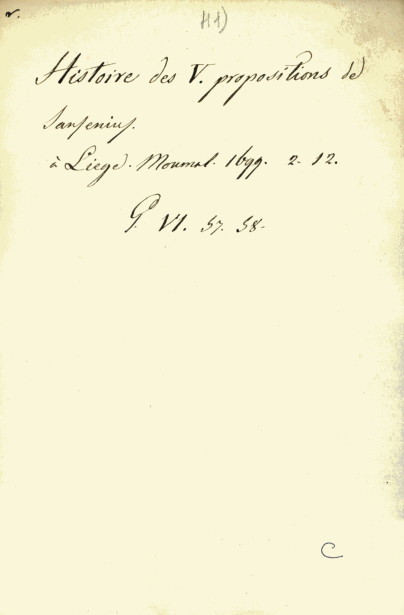 r. H1)
Histoire des V. propositions de
Jansenius.
à Liege. Moumal. 1699. 2. 12.
P. VI. 57. 58.
C